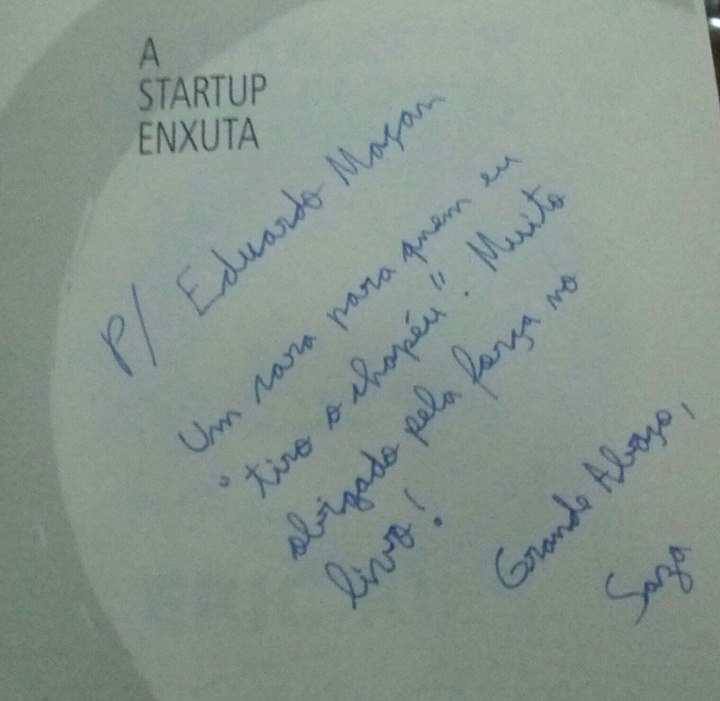 A
STARTUP
ENXUTA
P/ Eduardo Maçan
Um cara para quem eu
"tiro o chapéu". Muito
obrigado pela força no
livro!
Grande Abraço,